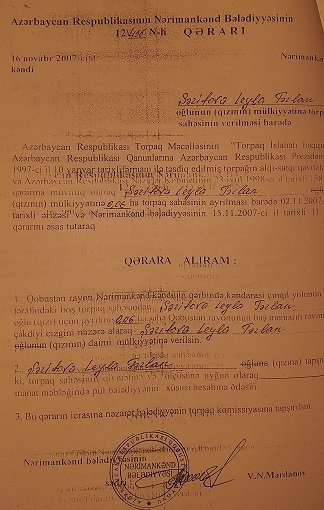 Azərbaycan Respublikasının Nərimankənd Bələdiyyəsinin
12 N-li QƏRARI
16 noyabr 2007-ci il Nərimanka
kəndi
Səfitova Leyla Tərlan
oğlunun (qızının) mülkiyyətinə torpa
sahəsinin verilməsi barədə
Azərbaycan Respublikası Torpaq Məcəlləsinin "Torpaq İslahatı haqqı
Azərbaycan Respublikası Qanunlarına Azərbaycan Respublikası Prezide
1997-ci il 10 yanvar tarixli fərmanı ilə təsdiq edilmiş torpağın alqı-satqı qaydala
və Azərbaycan Respublikası Nazirlər Kabinetinin 23 iyul 1998-ci il tarixli 158
qərarına müvafiq olaraq Səfitova Leyla Tərlan
(qızının) mülkiyyətinə 0,06 ha torpaq sahəsinin ayrılması barədə 02.11.2007-
tarixli ərizəsi və Nərimankənd bələdiyyəsinin 15.11.2007-ci il tarixli 11
qərarını əsas tutaraq
QƏRARA ALIRAM:
1. Qobustan rayon Nərimankəndkəndinin qərbində kəndarası çınqıl yolunun
tərəfindəki boş torpaq sahəsindən Səfitova Leyla Tərlan
oğlu (qızı) üçün ayrılmış 0,06 ha sahə Qobustan rayonunun baş memarın rəyini
çəkdiyi cizgini nəzərə alaraq Səfitova Leyla Tərlan
oğlunun (qızının) daimi mülkiyyətinə verilsin.
2. Səfitova Leyla Tərlan oğluna (qızına) tapşı
ki, torpaq sahəsinin qiymətinə və ölçüsünə uyğun olaraq
manat məbləğində pul bələdiyyənin xüsusi hesabına ödəsin.
3. Bu qərarın icrasına nəzarət bələdiyyənin torpaq komissiyasına tapşırılsın.
Nərimankənd bələdiyyəsinin
sədri: V.N.Mərdanov
NƏRİMANKƏND
BƏLƏDİYYƏSİ